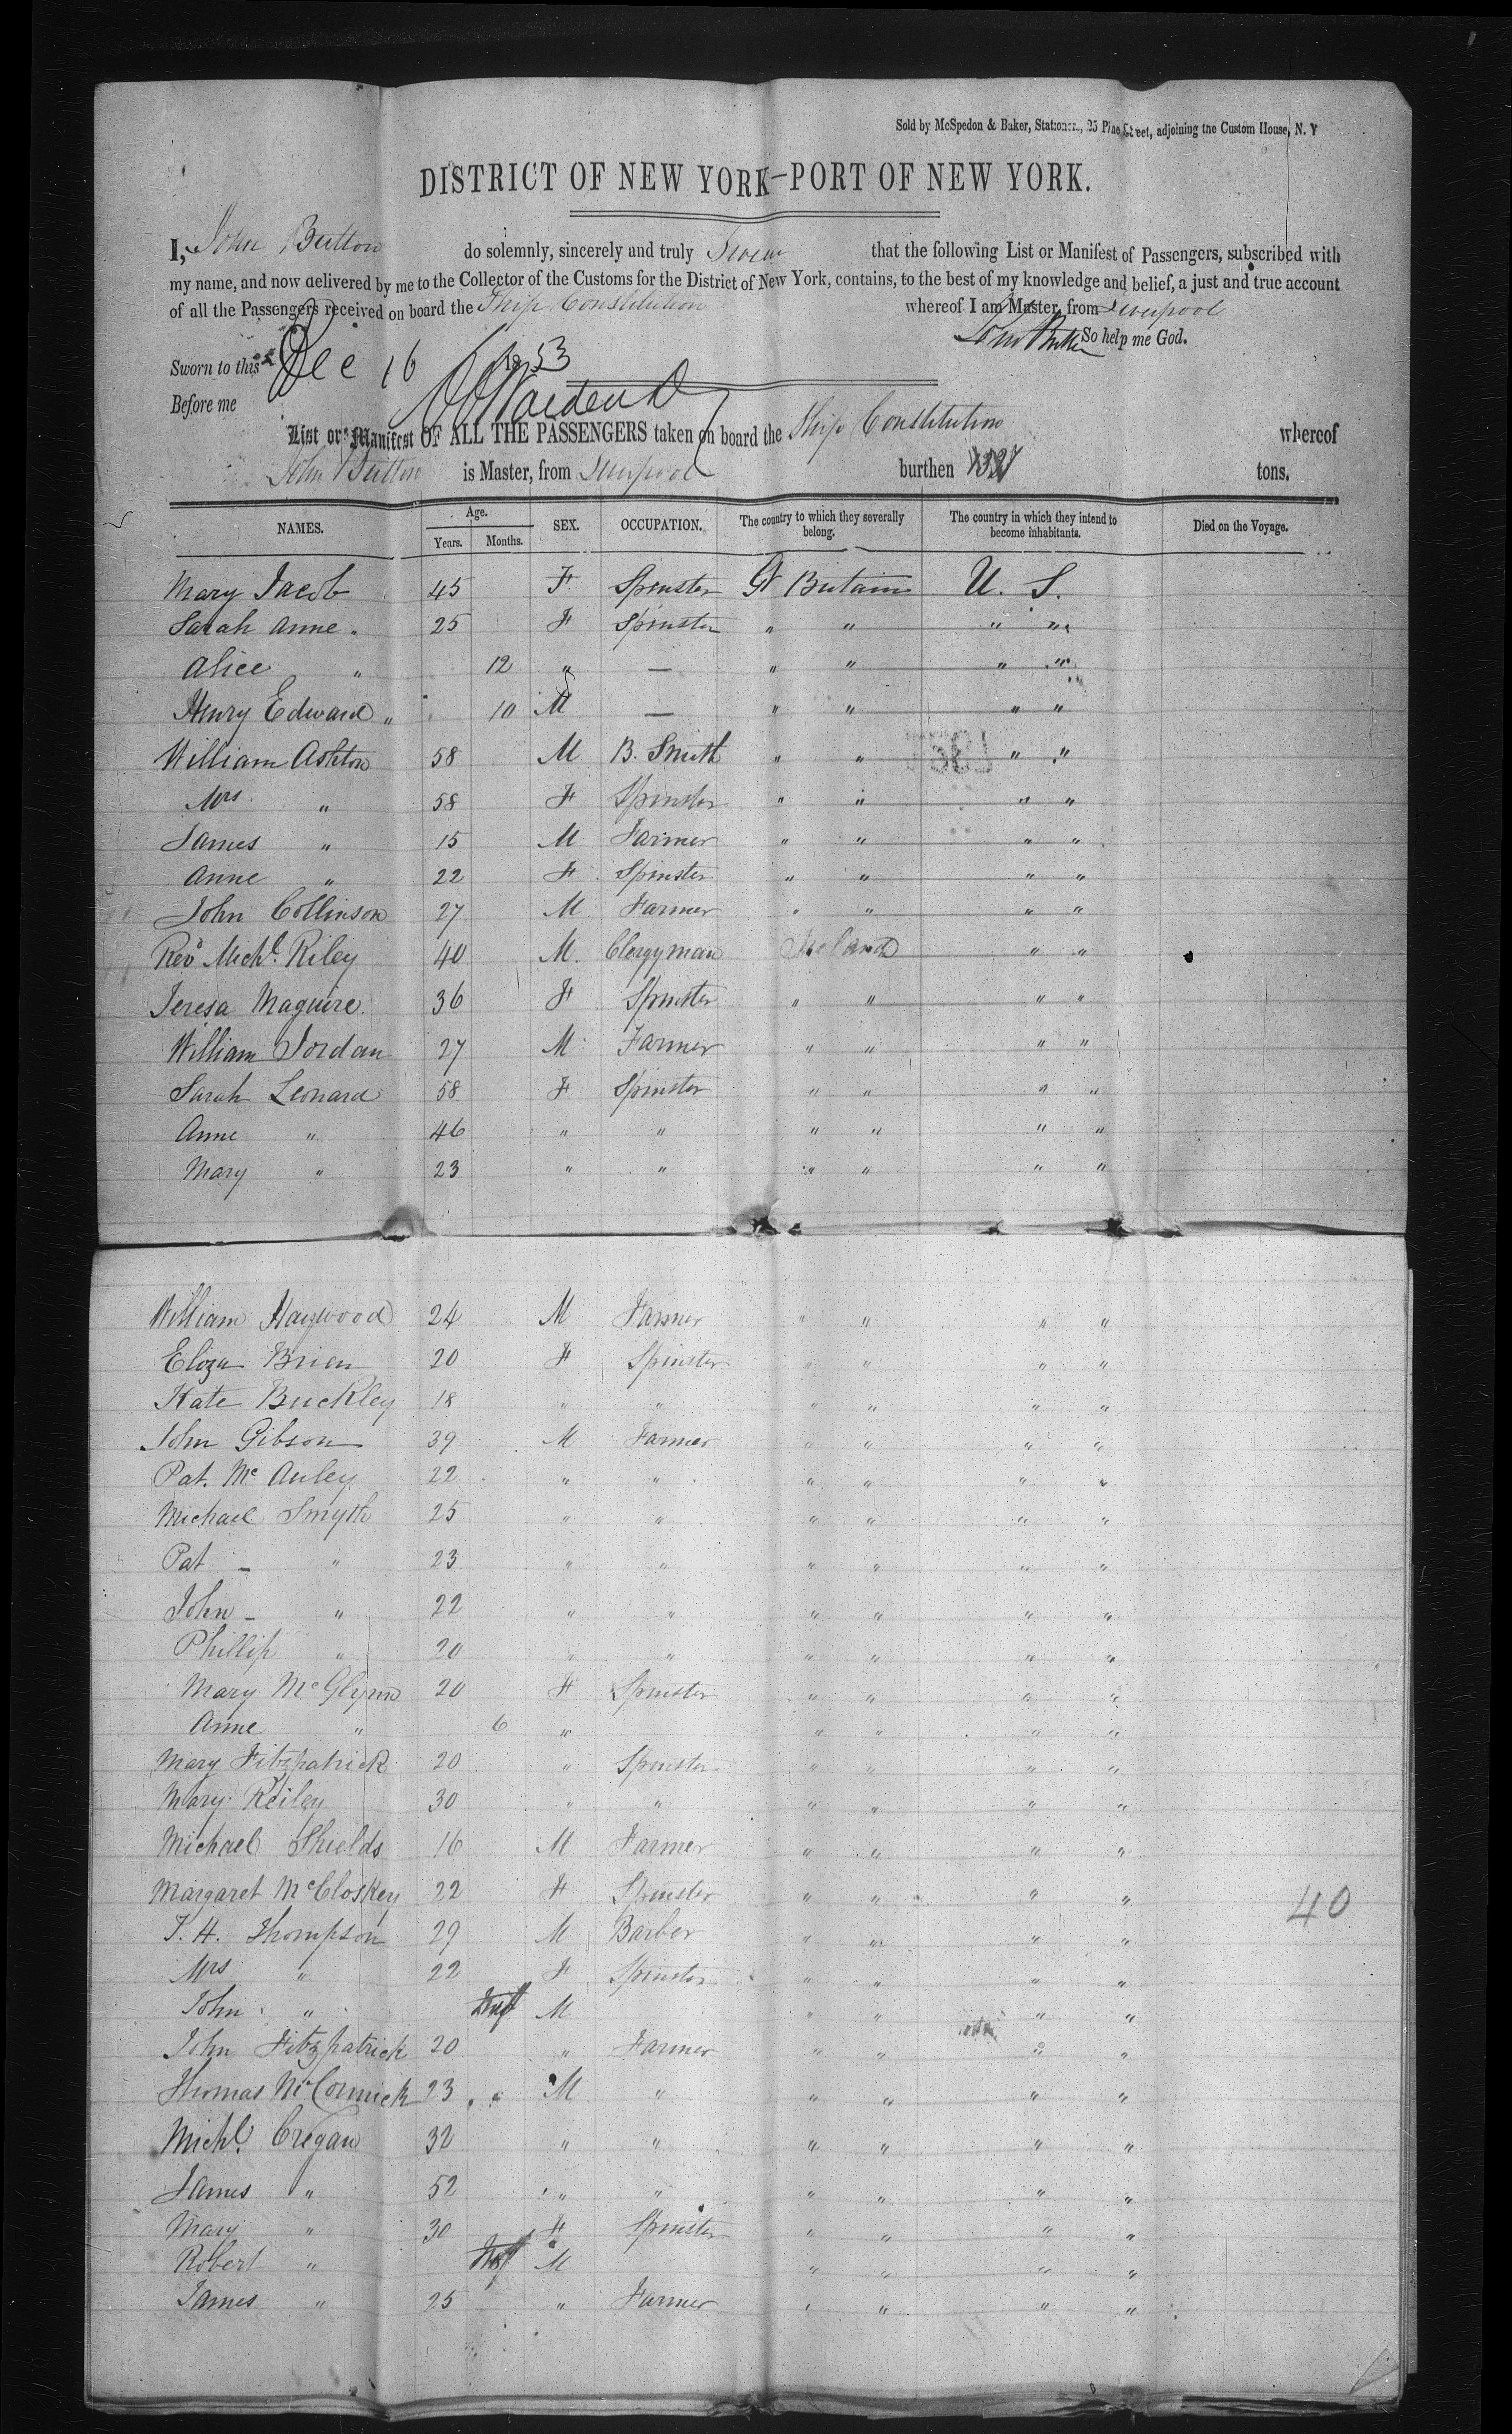 Sold by McSpedon & Baker, Stationers, 25 Pine Street, adjoining the Custom House, N. Y
DISTRICT OF NEW YORK–PORT OF NEW YORK.
I, John Button do solemnly, sincerely and truly Swear that the following List or Manifest of Passengers, subscribed with
my name, and now delivered by me to the Collector of the Customs for the District of New York, contains, to the best of my knowledge and belief, a just and true account
of all the Passengers received on board the Ship Constitution whereof I am Master, from Liverpool
John Button So help me God.
Sworn to this Dec 16 1853
Before me
List or Manifest OF ALL THE PASSENGERS taken on board the Ship Constitution whereof
John Button is Master, from Liverpool burthen tons.
NAMES. Age. Years. Months. SEX. OCCUPATION. The country to which they severally belong. The country in which they intend to become inhabitants. Died on the Voyage.
Mary Jacob 45 F Spinster Gt Britain U. S.
Sarah Anne " 25 F Spinster " " " "
Alice " 12 " — " " " "
Henry Edward " 10 M — " " " "
William Ashton 58 M B. Smith " " " "
Mrs " 58 F Spinster " " " "
James " 15 M Farmer " " " "
Anne " 22 F Spinster " " " "
John Collinson 27 M Farmer " " " "
Revd Michl. Riley 40 M. Clergyman Ireland " "
Teresa Maguire. 36 F Spinster " " " "
William Jordan 27 M Farmer " " " "
Sarah Leonard 58 F Spinster " " " "
Anne " 46 " " " " " "
Mary " 23 " " " " " "
William Haywood 24 M Farmer " " " "
Eliza Brien 20 F Spinster " " " "
Kate Buckley 18 " " " " " "
John Gibson 39 M Farmer " " " "
Pat. Mc Auley 22 " " " " " "
Michael Smyth 25 " " " " " "
Pat – " 23 " " " " " "
John – " 22 " " " " " "
Phillip " 20 " " " " " "
Mary McGlynn 20 F Spinster " " " "
Anne " 6 " " " " "
Mary Fitzpatrick 20 " Spinster " " " "
Mary Reiley 30 " " " " " "
Michael Shields 16 M Farmer " " " "
Margaret McCloskey 22 F Spinster " " " "
40
T. H. Thompson 29 M Barber " " " "
Mrs " 22 F Spinster " " " "
John " Inf M " " " "
John Fitzpatrick 20 " Farmer " " " "
Thomas McCormick 23 M " " " " "
Michl. Cregan 32 " " " " " "
James " 52 " " " " " "
Mary " 30 F Spinster " " " "
Robert " Inf M " " " "
James " 25 " Farmer " " " "